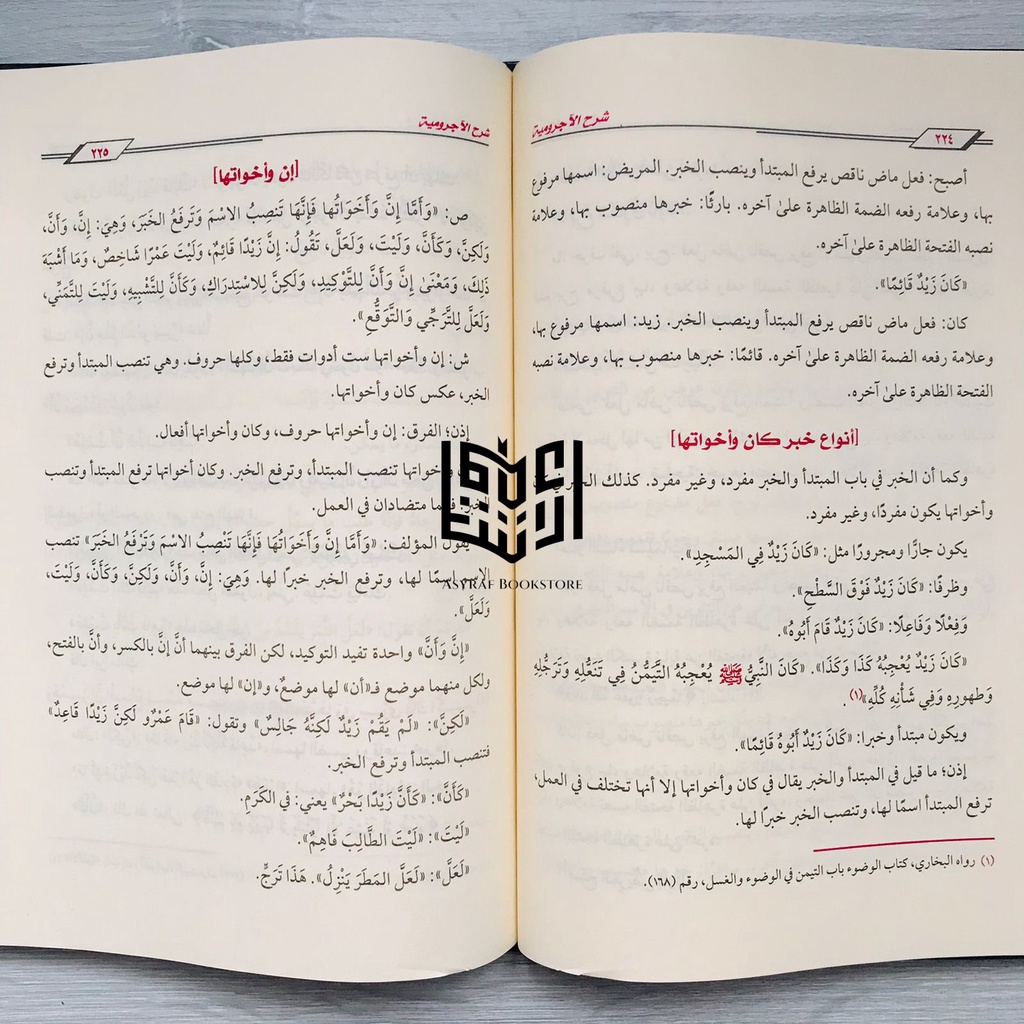 شرح الآجرومية
٢٢٤
أصبح: فعل ماض ناقص يرفع المبتدأ وينصب الخبر. المريض: اسمها مرفوع
بها، وعلامة رفعه الضمة الظاهرة علىٰ آخره. بارئًا: خبرها منصوب بها، وعلامة
نصبه الفتحة الظاهرة علىٰ آخره.
«كَانَ زَيْدٌ قَائِمًا».
كان: فعل ماض ناقص يرفع المبتدأ وينصب الخبر. زيد: اسمها مرفوع بها،
وعلامة رفعه الضمة الظاهرة علىٰ آخره. قائمًا: خبرها منصوب بها، وعلامة نصبه
الفتحة الظاهرة علىٰ آخره.
[أنواع خبر كان وأخواتها]
وكما أن الخبر في باب المبتدأ والخبر مفرد، وغير مفرد. كذلك الخبر في
وأخواتها يكون مفردًا، وغير مفرد.
يكون جارًّا ومجرورًا مثل: «كَانَ زَيْدٌ فِي المَسْجِدِ».
وظرفًا: «كَانَ زَيْدٌ فَوْقَ السَّطْحِ».
وَفِعْلًا وَفَاعِلًا: «كَانَ زَيْدٌ قَامَ أَبُوهُ».
«كَانَ زَيْدٌ يُعْجِبُهُ كَذَا وَكَذَا». «كَانَ النَّبِيُّ ﷺ يُعْجِبُهُ التَّيَمُّنُ فِي تَنَعُّلِهِ وَتَرَجُّلِهِ
وَطهورِهِ وَفِي شَأْنِهِ كُلِّهِ»(١).
ويكون مبتدأ وخبرا: «كَانَ زَيْدٌ أَبُوهُ قَائِمًا».
إذن؛ ما قيل في المبتدأ والخبر يقال في كان وأخواتها إلا أنها تختلف في العمل،
ترفع المبتدأ اسمًا لها، وتنصب الخبر خبرًا لها.
(١) رواه البخاري، كتاب الوضوء باب التيمن في الوضوء والغسل، رقم (١٦٨).
شرح الآجرومية
٢٢٥
[إن وأخواتها]
ص: «وَأَمَّا إِنَّ وَأَخَوَاتُها فَإِنَّهَا تَنصِبُ الاسْمَ وَتَرفَعُ الخَبَرَ، وَهِيَ: إِنَّ، وَأَنَّ،
وَلَكِنَّ، وَكَأَنَّ، وَلَيْتَ، وَلَعَلَّ، تَقُولُ: إِنَّ زَيْدًا قَائِمٌ، وَلَيْتَ عَمْرًا شَاخِصٌ، وَمَا أَشْبَهَ
ذَلِكَ، وَمَعْنَىٰ إِنَّ وَأَنَّ لِلتَّوْكِيدِ، وَلَكِنَّ لِلاسْتِدْرَاكِ، وَكَأَنَّ لِلتَّشْبِيهِ، وَلَيْتَ لِلتَّمَنِّي،
وَلَعَلَّ لِلتَّرَجِّي وَالتَّوَقُّعِ».
ش: إن وأخواتها ست أدوات فقط، وكلها حروف. وهي تنصب المبتدأ وترفع
الخبر، عكس كان وأخواتها.
إذن؛ الفرق: إن وأخواتها حروف، وكان وأخواتها أفعال.
وأخواتها تنصب المبتدأ، وترفع الخبر. وكان أخواتها ترفع المبتدأ وتنصب
الخبر. متضادان في العمل.
يقول المؤلف: «وَأَمَّا إِنَّ وَأَخَوَاتُهَا فَإِنَّهَا تَنْصِبُ الاسْمَ وَتَرْفَعُ الخَبَرَ» تنصب
اسمًا لها، وترفع الخبر خبرًا لها. وَهِيَ: إِنَّ، وَأَنَّ، وَلَكِنَّ، وَكَأَنَّ، وَلَيْتَ،
وَلَعَلَّ».
«إِنَّ وَأَنَّ» واحدة تفيد التوكيد، لكن الفرق بينهما أنَّ إنَّ بالكسر، وأنَّ بالفتح،
ولكل منهما موضع فـ«أن» لها موضعٌ، و«إن» لها موضع.
«لَكِنَّ»: «لَمْ يَقُمْ زَيْدٌ لَكِنَّهُ جَالِسٌ» وتقول: «قَامَ عَمْرٌو لَكِنَّ زَيْدًا قَاعِدٌ»
فتنصب المبتدأ وترفع الخبر.
«كَأَنَّ»: «كَأَنَّ زَيْدًا بَحْرٌ» يعني: في الكَرَمِ.
«لَيْتَ»: «لَيْتَ الطَّالِبَ فَاهِمٌ».
«لَعَلَّ»: «لَعَلَّ المَطَرَ يَنْزِلُ». هَذَا تَرَجٍّ.
ASYRAF BOOKSTORE